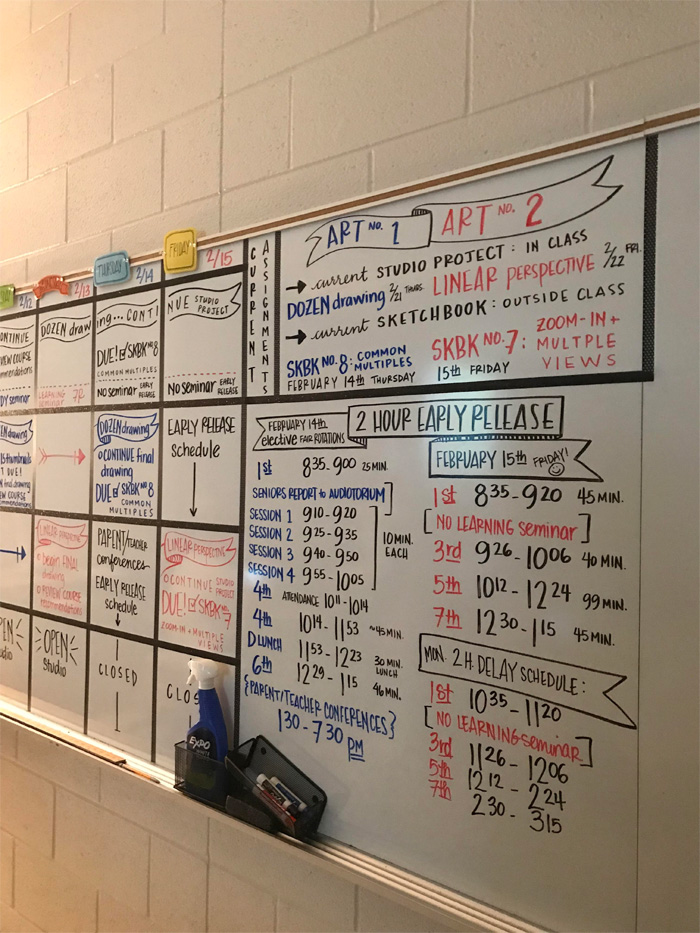 2/12
2/13
THURSDAY
2/14
FRIDAY
2/15
CURRENT
ASSIGNMENTS
ART NO. 1
ART NO. 2
→ current STUDIO PROJECT: IN CLASS
DOZEN drawing 2/21 THURS.
LINEAR PERSPECTIVE 2/22 FRI.
→ current SKETCHBOOK: OUTSIDE CLASS
SKBK NO. 8: COMMON
MULTIPLES
FEBRUARY 14th THURSDAY
SKBK NO. 7: ZOOM-IN +
MULTPLE
VIEWS
15th FRIDAY
DOZEN draw
ing... CONTI
NUE STUDIO
PROJECT
DUE! SKBK NO. 8
COMMON MULTIPLES
LEARNING
seminar
NO seminar EARLY
RELEASE
NO seminar EARLY
RELEASE
DOZEN drawing
CONTINUE final
drawing
DUE SKBK NO. 8
COMMON
MULTIPLES
EARLY RELEASE
schedule
LINEAR PERSPECTIVE
begin FINAL
drawing
REVIEW COURSE
recommendations
PARENT/TEACHER
conferences
EARLY RELEASE
schedule
LINEAR PERSPECTIVE
CONTINUE STUDIO
PROJECT
DUE! SKBK NO. 7
ZOOM-IN + MULTIPLE
VIEWS
OPEN
Studio
CLOSED
CLOS
EXPO
2 HOUR EARLY RELEASE
FEBRUARY 14th
elective FAIR ROTATIONS
1st 835-900 25 MIN.
SENIORS REPORT to AUDIOTORIUM
SESSION 1 910-920
SESSION 2 925-935
SESSION 3 940-950
SESSION 4 955-1005
10 MIN.
EACH
4th ATTENDANCE 1011-1014
4th 1014-1153 ~45 MIN.
D LUNCH 1153-1223 30 MIN.
LUNCH
6th 1229-115 46 MIN.
{PARENT/TEACHER CONFERENCES}
130-730 PM
FEBRUARY 15th FRIDAY!
1st 835-920 45 MIN.
[NO LEARNING seminar]
3rd 926-1006 40 MIN.
5th 1012-1224 99 MIN.
7th 1230-115 45 MIN.
MON. 2 H. DELAY SCHEDULE:
1st 1035-1120
[NO LEARNING seminar]
3rd 1126-1206
5th 1212-224
7th 230-315